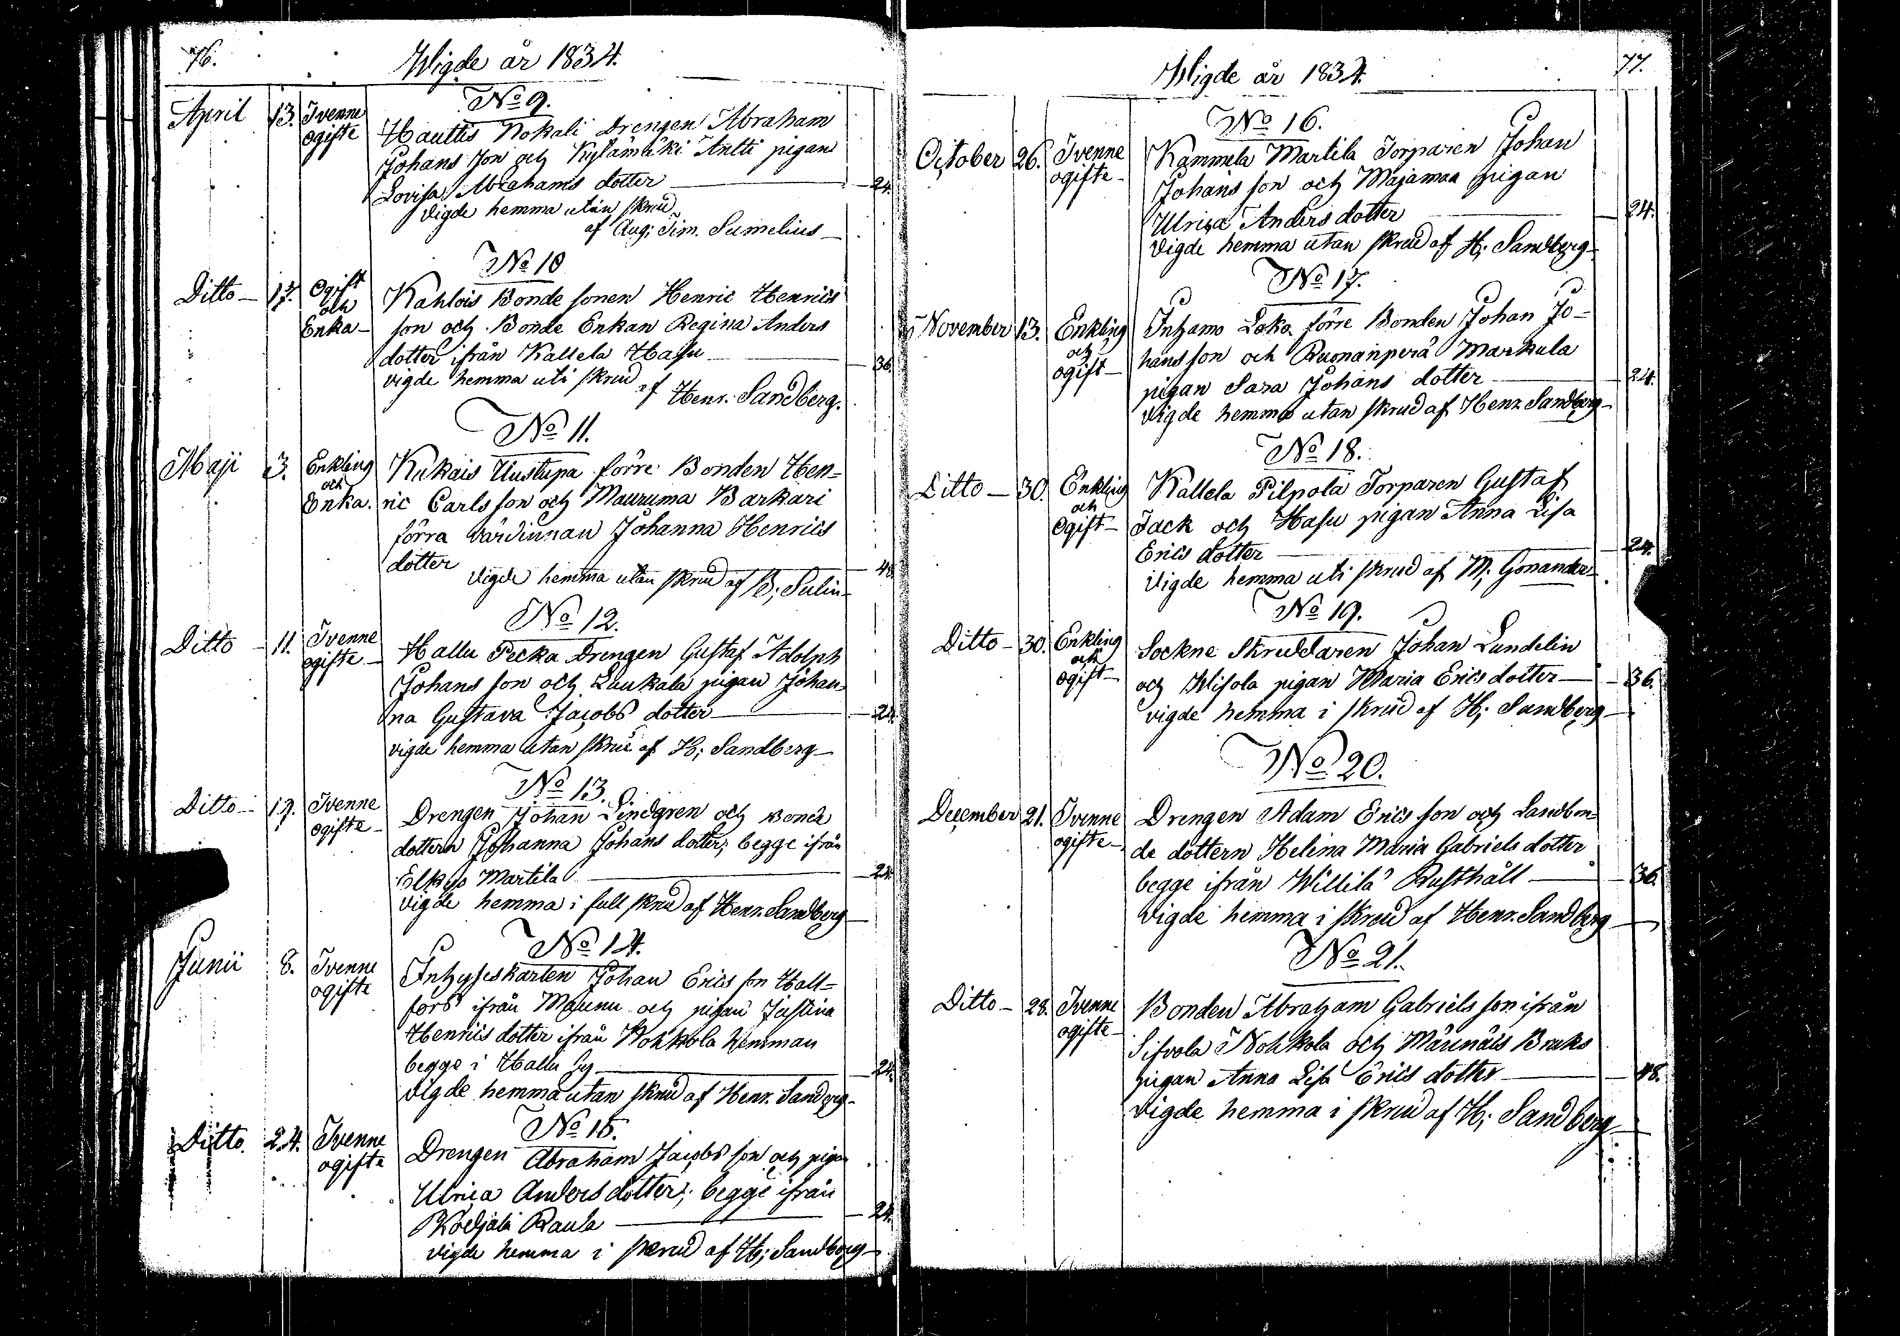 76.
Wigde år 1834.
No 9.
April 13. Tvenne ogifte
Hauttis Nokali Drengen Abraham
Johans son och Kylämäki Antti pigan
Lovisa Abrahams dotter — 24.
vigde hemma utan skrud
af Aug: Tim. Sumelius —
No 10
Ditto — 17. Ogift och Enka —
Kahlois Bonde sonen Henric Henrics
son och Bonde Enkan Regina Anders
dotter ifrån Kallela Hasu — 36.
vigde hemma uti skrud
af Henr. Sandberg.
No 11.
Maji 3. Enkling och Enka.
Kukais Uustupa förre Bonden Hen=
ric Carls son och Mauruma Barkari
förra värdinnan Johanna Henrics
dotter — 48.
vigde hemma utan skrud af B; Sulin —
No 12.
Ditto — 11. Tvenne ogifte —
Hallu Pecka Drengen Gustaf Adolph
Johans son och Laukala pigan Johan=
na Gustava Jacobs dotter — 24.
vigde hemma utan skrud af H; Sandberg —
No 13.
Ditto — 19. Tvenne ogifte —
Drengen Johan Lindgren och Bonde
dottern Johanna Johans dotter; begge ifrån
Elkys Martila — 24.
vigde hemma i full skrud af Henr. Sandberg —
No 14.
Junii 8. Tvenne ogifte
Inhyseskarlen Johan Erics son Hall=
fors ifrån Maunu och pigan Justina
Henrics dotter ifrån Nohkola hemman
begge i Hallu by — 24.
vigde hemma utan skrud af Henr. Sandberg —
No 15.
Ditto. 24. Tvenne ogifte
Drengen Abraham Jacobs son och pigan
Ulrica Anders dotter; begge ifrån
Raula — 24.
vigde hemma i skrud af H; Sandberg —
77.
Wigde år 1834.
No 16.
October 26. Tvenne ogifte —
Kammela Martila Torparen Johan
Johans son och Majamaa pigan
Ulrica Anders dotter — 24.
vigde hemma utan skrud af H; Sandberg —
No 17.
November 13. Enkling och ogift —
Inhamo Loko förre Bonden Johan Jo=
hans son och Ruonanperä Markula
pigan Sara Johans dotter — 24.
vigde hemma utan skrud af Henr. Sandberg —
No 18.
Ditto — 30. Enkling och Ogift —
Kallela Pilpola Torparen Gustaf
Jack och Hasu pigan Anna Lisa
Erics dotter — 24.
vigde hemma uti skrud af M; Gonander —
No 19.
Ditto — 30. Enkling och ogift —
Sockne Skreddaren Johan Lundelin
och Wisola pigan Maria Erics dotter — 36.
vigde hemma i skrud af H; Sandberg —
No 20.
December 21. Tvenne ogifte —
Drengen Adam Erics son och Landbon=
de dottern Helina Maria Gabriels dotter
begge ifrån Willilä Rusthåll — 36.
vigde hemma i skrud af Henr. Sandberg —
No 21.
Ditto — 28. Tvenne ogifte —
Bonden Abraham Gabriels son ifrån
Sifvola Nohkola och Mäenäis Bruks
pigan Anna Lisa Erics dotter — 48.
vigde hemma i skrud af H; Sandberg —